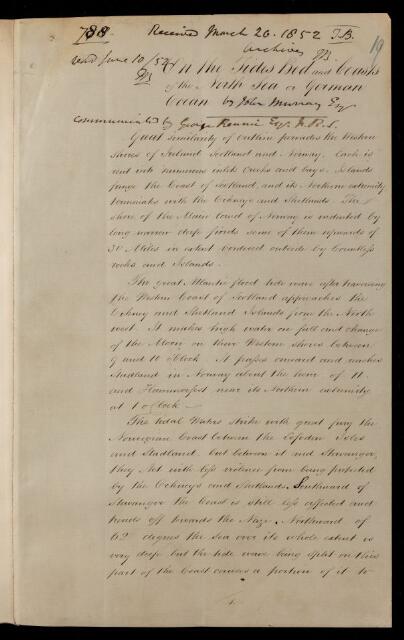 788. Received March 20. 1852 T.B.
Archives
19
read June 10/52
On the Tides Bed and Coasts
of the North Sea or German
Ocean by John Murray Esqr
Communicated by George Rennie Esqr F.R.S.
Great similarity of outline pervades the Western
shores of Ireland Scotland and Norway. Each is
cut into numerous inlets Creeks and bays. Islands
fringe the Coast of Scotland, and its Northern extremity
terminates with the Orkneys and Shetlands. The
shore of the Main land of Norway is indented by
long narrow deep fiords some of them upwards of
30 Miles in extent bordered outside by Countless
rocks and Islands.
The great Atlantic flood tide wave after traversing
the Western Coast of Scotland approaches the
Orkney and Shetland Islands from the North
west. It makes high water on full and change
of the Moon on their Western shores between
9 and 10 oClock. It passes onward and reaches
Stadland in Norway about the hour of 11
and Hammerfest near its Northern extremity
at 1 oClock —
The tidal Waters strike with great fury the
Norwegian Coast between the Lofoden Isles
and Stadland, but between it and Stavanger,
they Act with less violence from being protected
by the Orkneys and Shetlands. Southward of
Stavanger the Coast is still less affected and
trends off towards the Naze. Northward of
62 degrees the sea over its whole extent is
very deep but the tide wave being split on this
part of the Coast causes a portion of it to